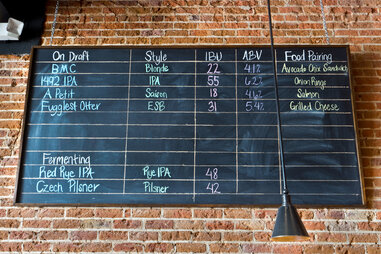 On Draft Style IBU ABV Food Pairing
BMC Blonde 22 4.12 Avocado Chix Sandwich
1492 IPA IPA 55 6.23 Onion Rings
A Petit Saison 18 4.62 Salmon
Fugglest Otter ESB 31 5.42 Grilled Cheese
Fermenting
Red Rye IPA Rye IPA 48
Czech Pilsner Pilsner 42